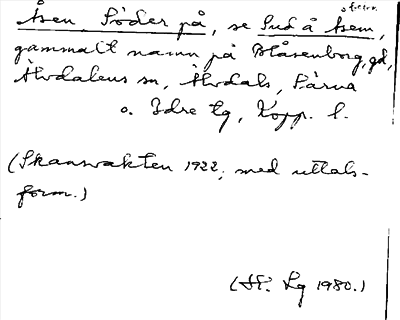 Åsen, Söder på, se Sud å Åsem,
gammalt namn på Blåsenborg, gd,
Älvdalens sn, Älvdals, Särna
o. Idre tg, Kopp. l.
(Skansvakten 1922, med uttals-
form.)
(St. Lg 1980.)